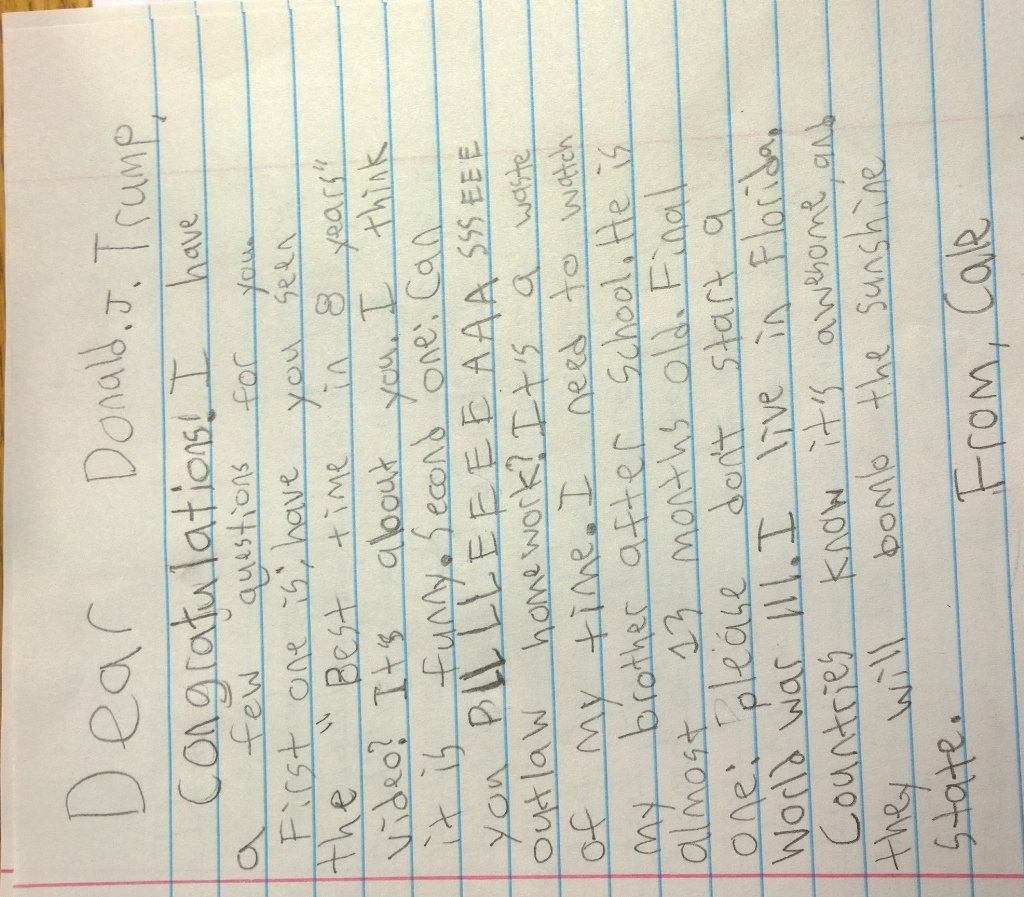 Dear Donald.J. Trump,
Congratulations! I have
a few questions for you.
First one is, have you seen
the "Best time in 8 years"
video? Its about you. I think
it is funny. Second one: Can
you PLLLLEEEEEAAA SSSEEE
outlaw homework? It's a waste
of my time. I need to watch
my brother after school. He is
almost 13 months old. Final
one: please don't start a
World war III. I live in Florida.
Countries know it's awesome, and
they will bomb the sunshine
state.
From, Cale